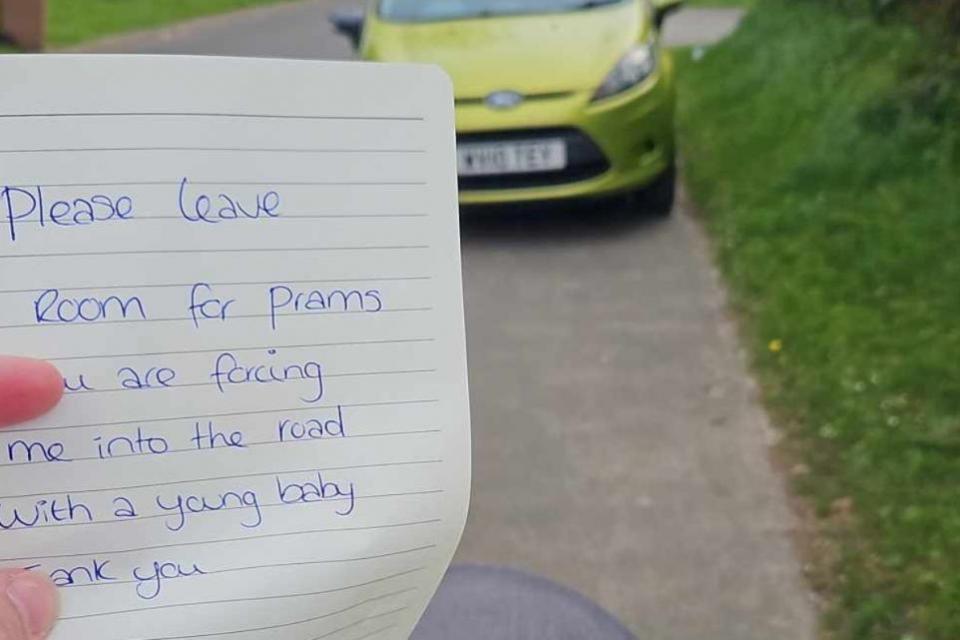 WV10 TEY
Please leave
Room for Prams
u are forcing
me into the road
with a young baby
ank you